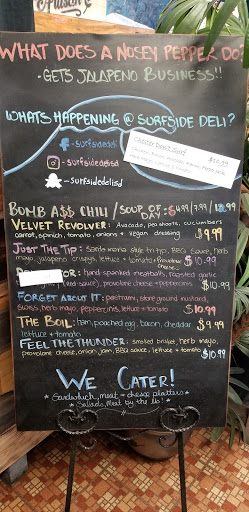 WHAT DOES A NOSEY PEPPER DO?
-GETS JALAPENO BUSINESS!!
WHATS HAPPENING @ SURFSIDE DELI?
-surfsidedelisd
-surfsidedelisd
-surfsidedelisd
$10.99
BOMB A$$ CHILI / SOUP OF DAY - /7.99 /
VELVET REVOLVER: Avocado, pea shoots, cucumbers
carrot, sprouts, tomato, onions + vegan dressing $9.99
JUST THE TIP: Santa maria style tri tip, BBQ sauce, herb
mayo, jalapeno crisps, lettuce + tomato + Provolone cheese $10.99
TOR: hand spanked meatballs, roasted garlic
(red sauce), provolone cheese + pepperoncinis $10.99
FORGET ABOUT IT: pastrami, stone ground mustard,
swiss, herb mayo, pepperoncinis, lettuce + tomato $10.99
THE BOIL: ham, poached egg, bacon, cheddar $9.99
lettuce + tomato
FEEL THE THUNDER: smoked brisket, herb mayo,
provolone cheese, onion jam, BBQ sauce, lettuce + tomato $10.99
WE CATER!
* Sandwich, meat + cheese platters *
* Salads, Meat by the lb! *